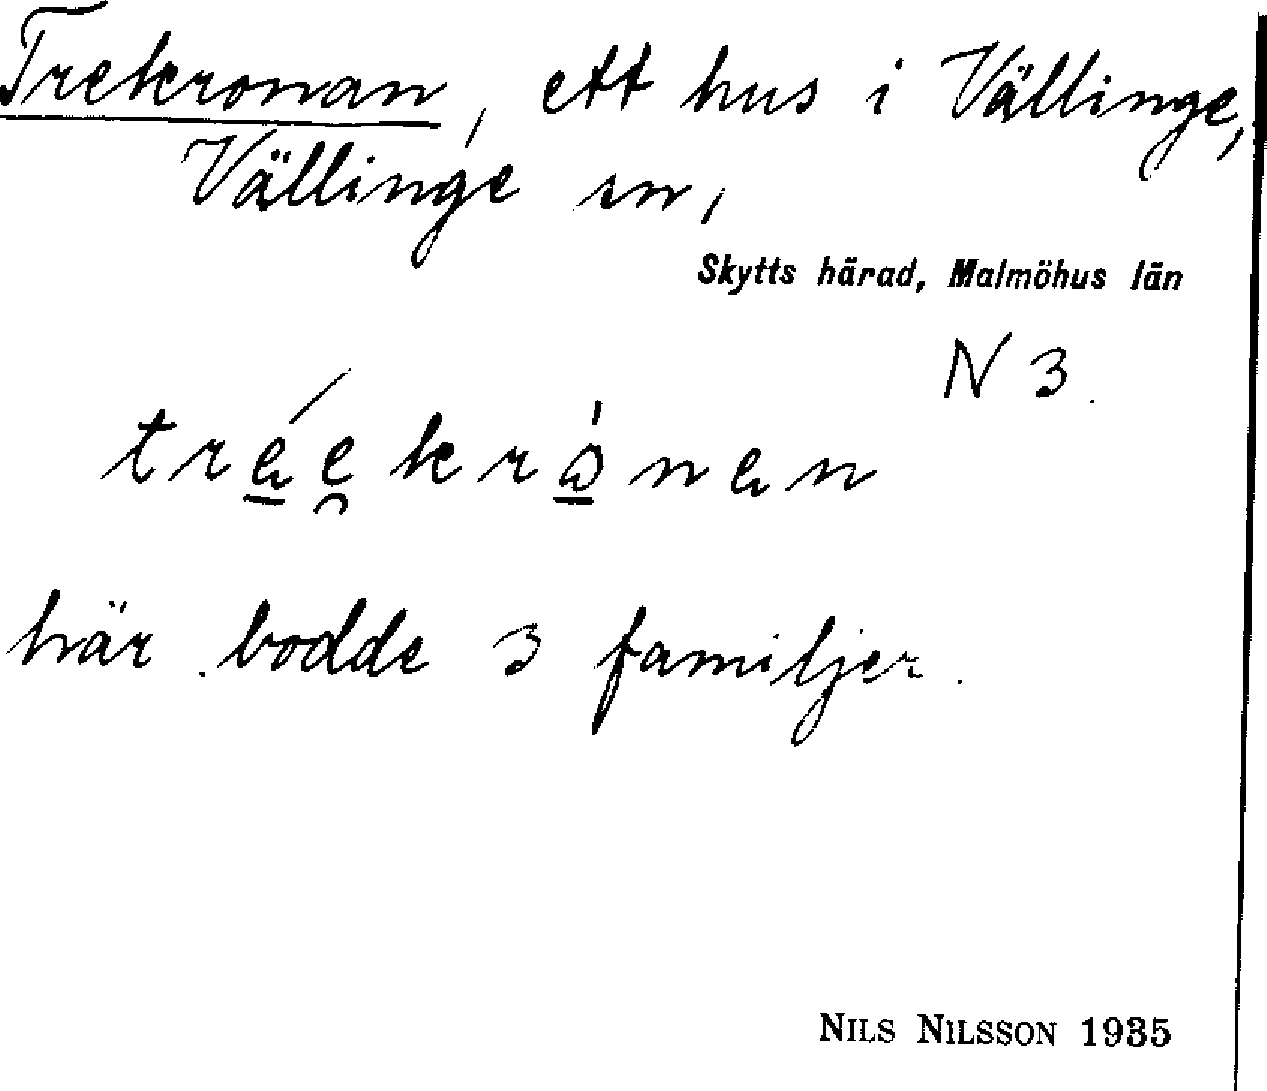 Trekronan, ett hus i Vällinge,
Vällinge sn,
Skytts härad, Malmöhus län
N 3.
här bodde 3 familjer.
NILS NILSSON 1935